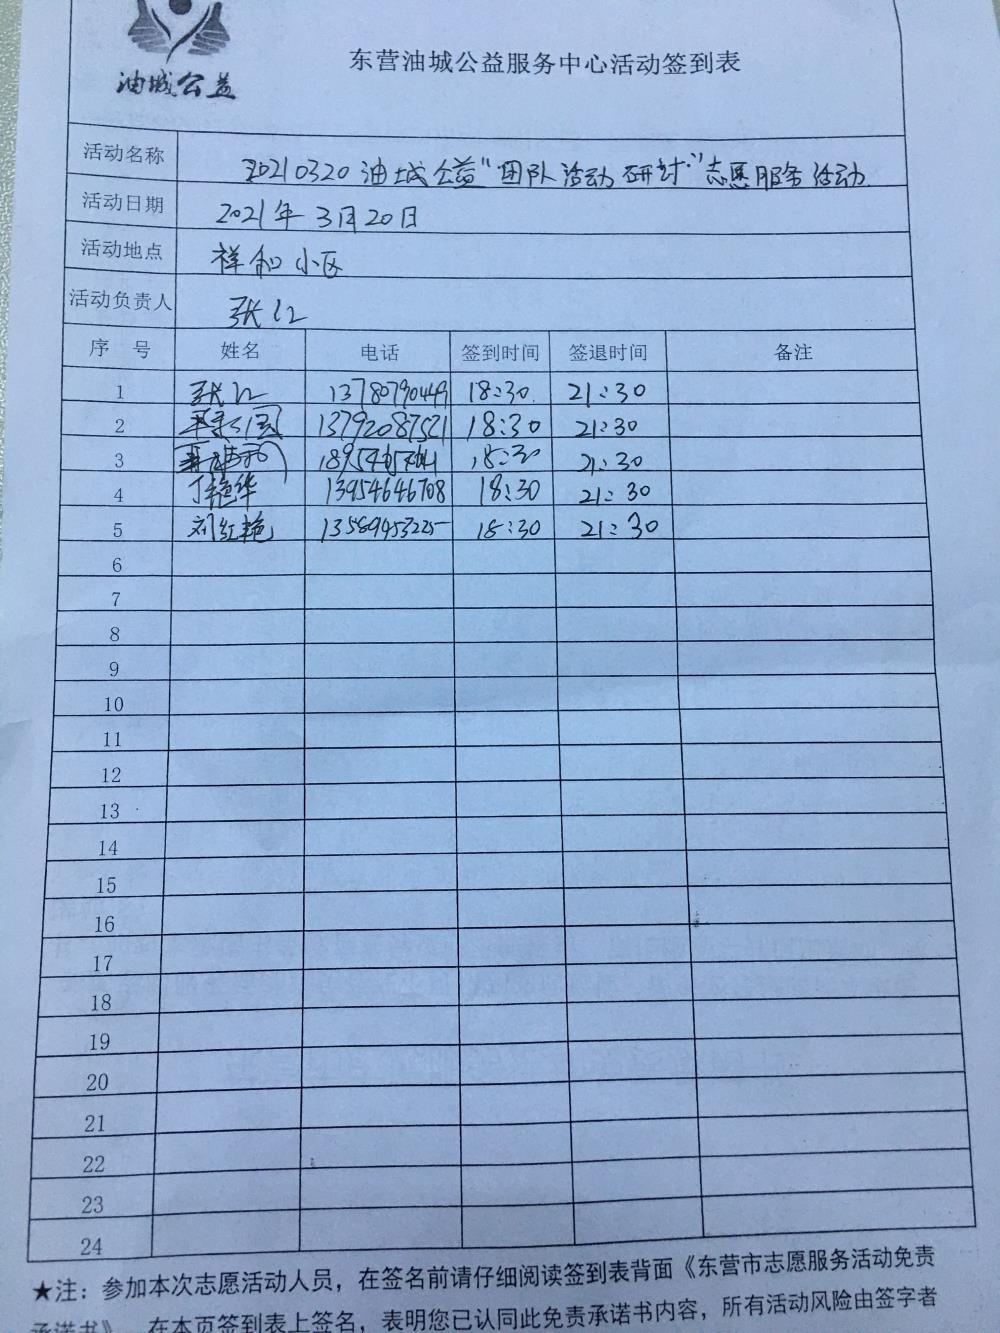 油城公益
东营油城公益服务中心活动签到表
活动名称 20210320油城公益“团队活动研讨”志愿服务活动
活动日期 2021年3月20日
活动地点 祥和小区
活动负责人 张江
序 号 姓名 电话 签到时间 签退时间 备注
1 张江 13780790449 18:30 21:30
2 13792087521 18:30 21:30
3 18:30 21:30
4 丁艳华 13954646708 18:30 21:30
5 刘红艳 13589453225 18:30 21:30
6
7
8
9
10
11
12
13
14
15
16
17
18
19
20
21
22
23
24
★注：参加本次志愿活动人员，在签名前请仔细阅读签到表背面《东营市志愿服务活动免责
承诺书》，在本页签到表上签名，表明您已认同此免责承诺书内容，所有活动风险由签字者